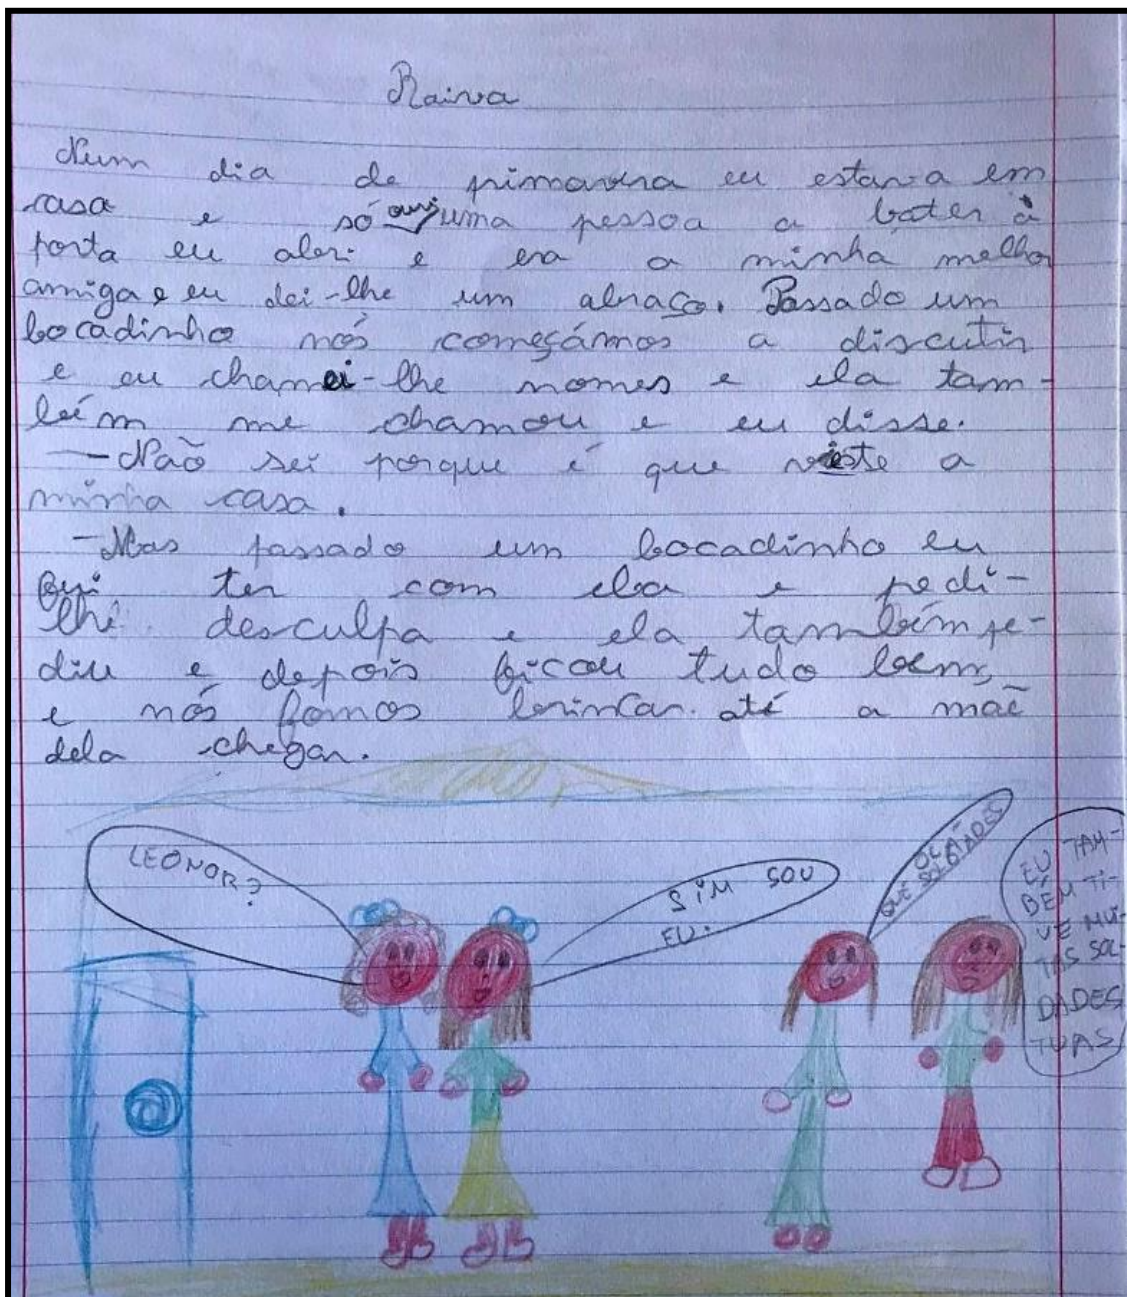 Raiva
Num dia de primavera eu estava em
casa e só ouvi uma pessoa a bater à
porta eu abri e era a minha melhor
amiga e eu dei-lhe um abraço. Passado um
bocadinho nós começámos a discutir
e eu chamei-lhe nomes e ela tam-
bém me chamou e eu disse.
—Não sei porque é que viste a
minha casa.
-Mas passado um bocadinho eu
fui ter com ela e pedi-
lhe desculpa e ela também pe-
diu e depois ficou tudo bem,
e nós fomos brincar até a mãe
dela chegar.
LEONOR?
SIM SOU
EU.
OLÁ
QUE SAUDADES
EU TAM-
BÉM TI-
VE MUI-
TAS SAU-
DADES
TUAS